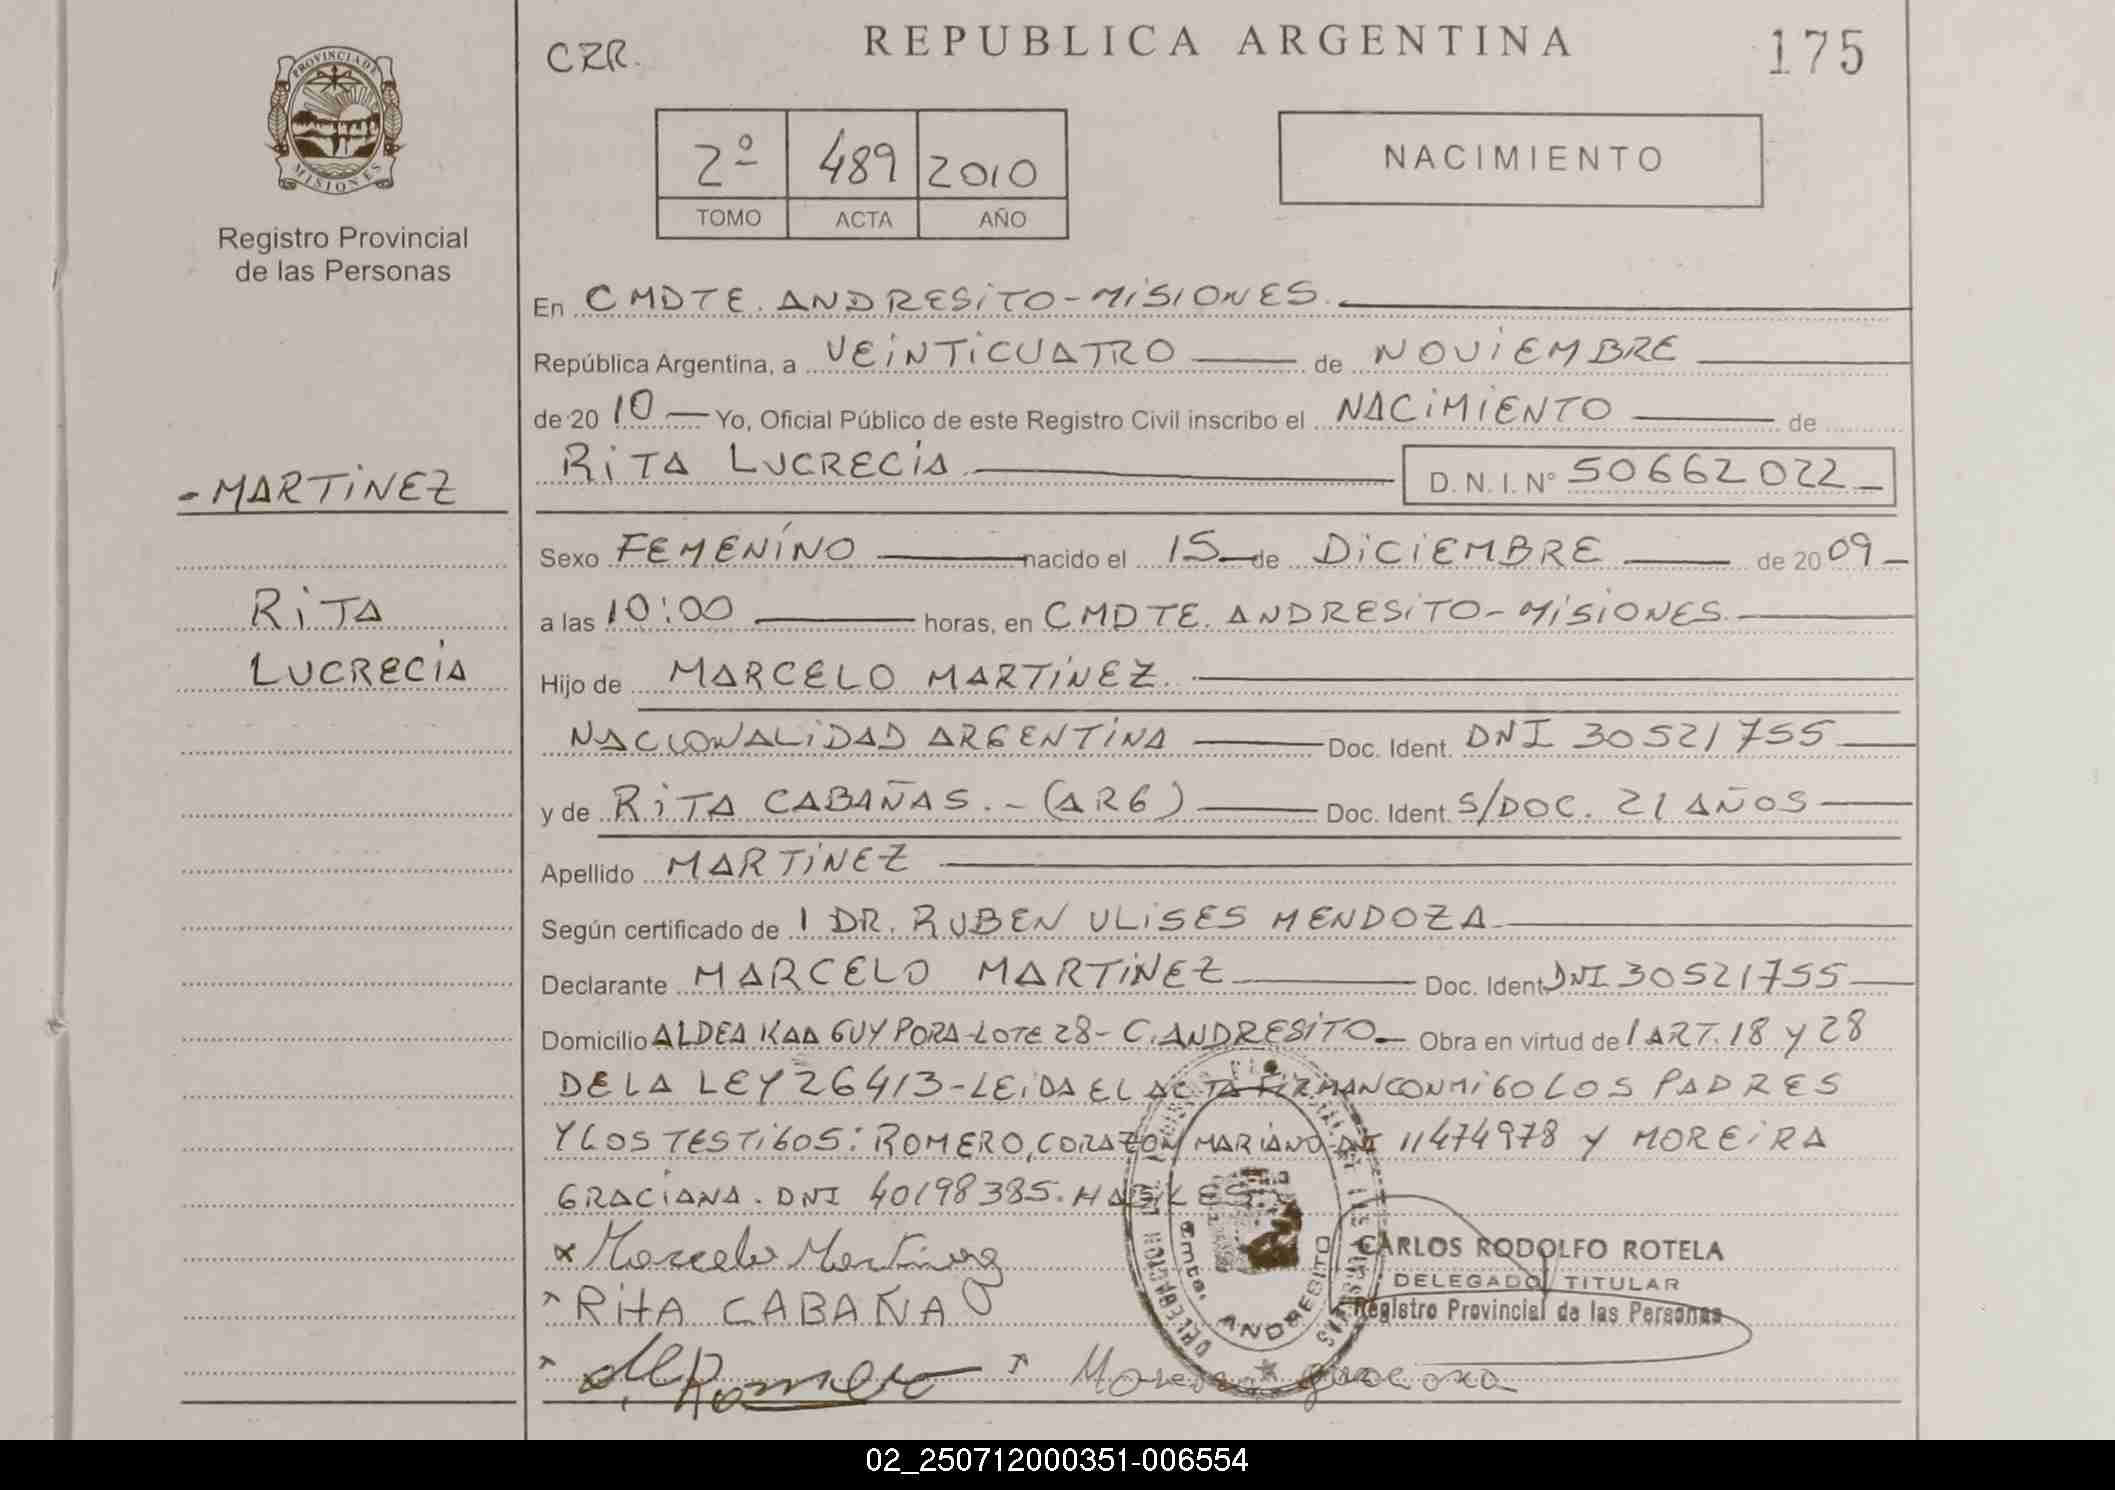 PROVINCIA DE
MISIONES
Registro Provincial
de las Personas
CZR.
REPUBLICA ARGENTINA
175
2º 489 2010
TOMO ACTA AÑO
NACIMIENTO
En CMDTE. ANDRESITO-MISIONES.
República Argentina, a VEINTICUATRO de NOVIEMBRE
de 20 10 Yo, Oficial Público de este Registro Civil inscribo el NACIMIENTO de
RITA LUCRECIA D. N. I. Nº 50662022
-MARTINEZ
RITA
LUCRECIA
Sexo FEMENINO nacido el 15 de DICIEMBRE de 20 09
a las 10:00 horas, en CMDTE. ANDRESITO-MISIONES.
Hijo de MARCELO MARTINEZ.
NACIONALIDAD ARGENTINA Doc. Ident. DNI 30521755
y de RITA CABAÑAS.-(ARG) Doc. Ident. S/DOC. 21 AÑOS
Apellido MARTINEZ
Según certificado de 1 DR. RUBEN ULISES MENDOZA
Declarante MARCELO MARTINEZ Doc. Ident DNI 30521755
Domicilio ALDEA KAA GUY PORA-LOTE 28- C.ANDRESITO Obra en virtud de 1 ART. 18 Y 28
DE LA LEY 26413-LEIDA EL ACTA FIRMAN CONMIGO LOS PADRES
Y LOS TESTIGOS: ROMERO, CORAZON MARIANO-DNI 11474978 Y MOREIRA
GRACIANA. DNI 40198385.
x Marcelo Martinez
RitA CABAÑA
Romero
Moreira graciana
Cmte. ANDRESITO
CARLOS RODOLFO ROTELA
DELEGADO TITULAR
Registro Provincial de las Personas
02_250712000351-006554